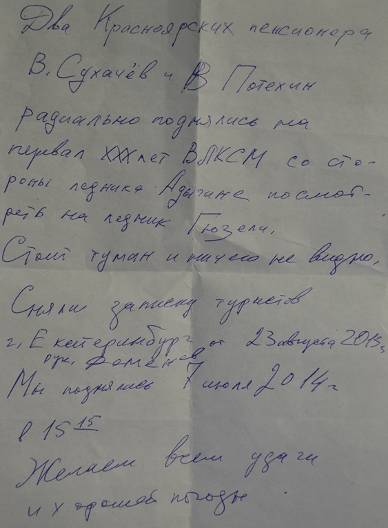 Два Красноярских пенсионера
В. Сухачёв и В Потехин
радиально поднялись на
перевал XXX лет ВЛКСМ со сто-
роны ледника Адыгине посмот-
реть на ледник Гюзель.
Стоит туман и ничего не видно.
Сняли записку туристов
г. Екатеринбург от 23 августа 2013г.
рук.
Мы поднялись 7 июля 2014г
в 15 15
Желаем всем удачи
и хорошей погоды.